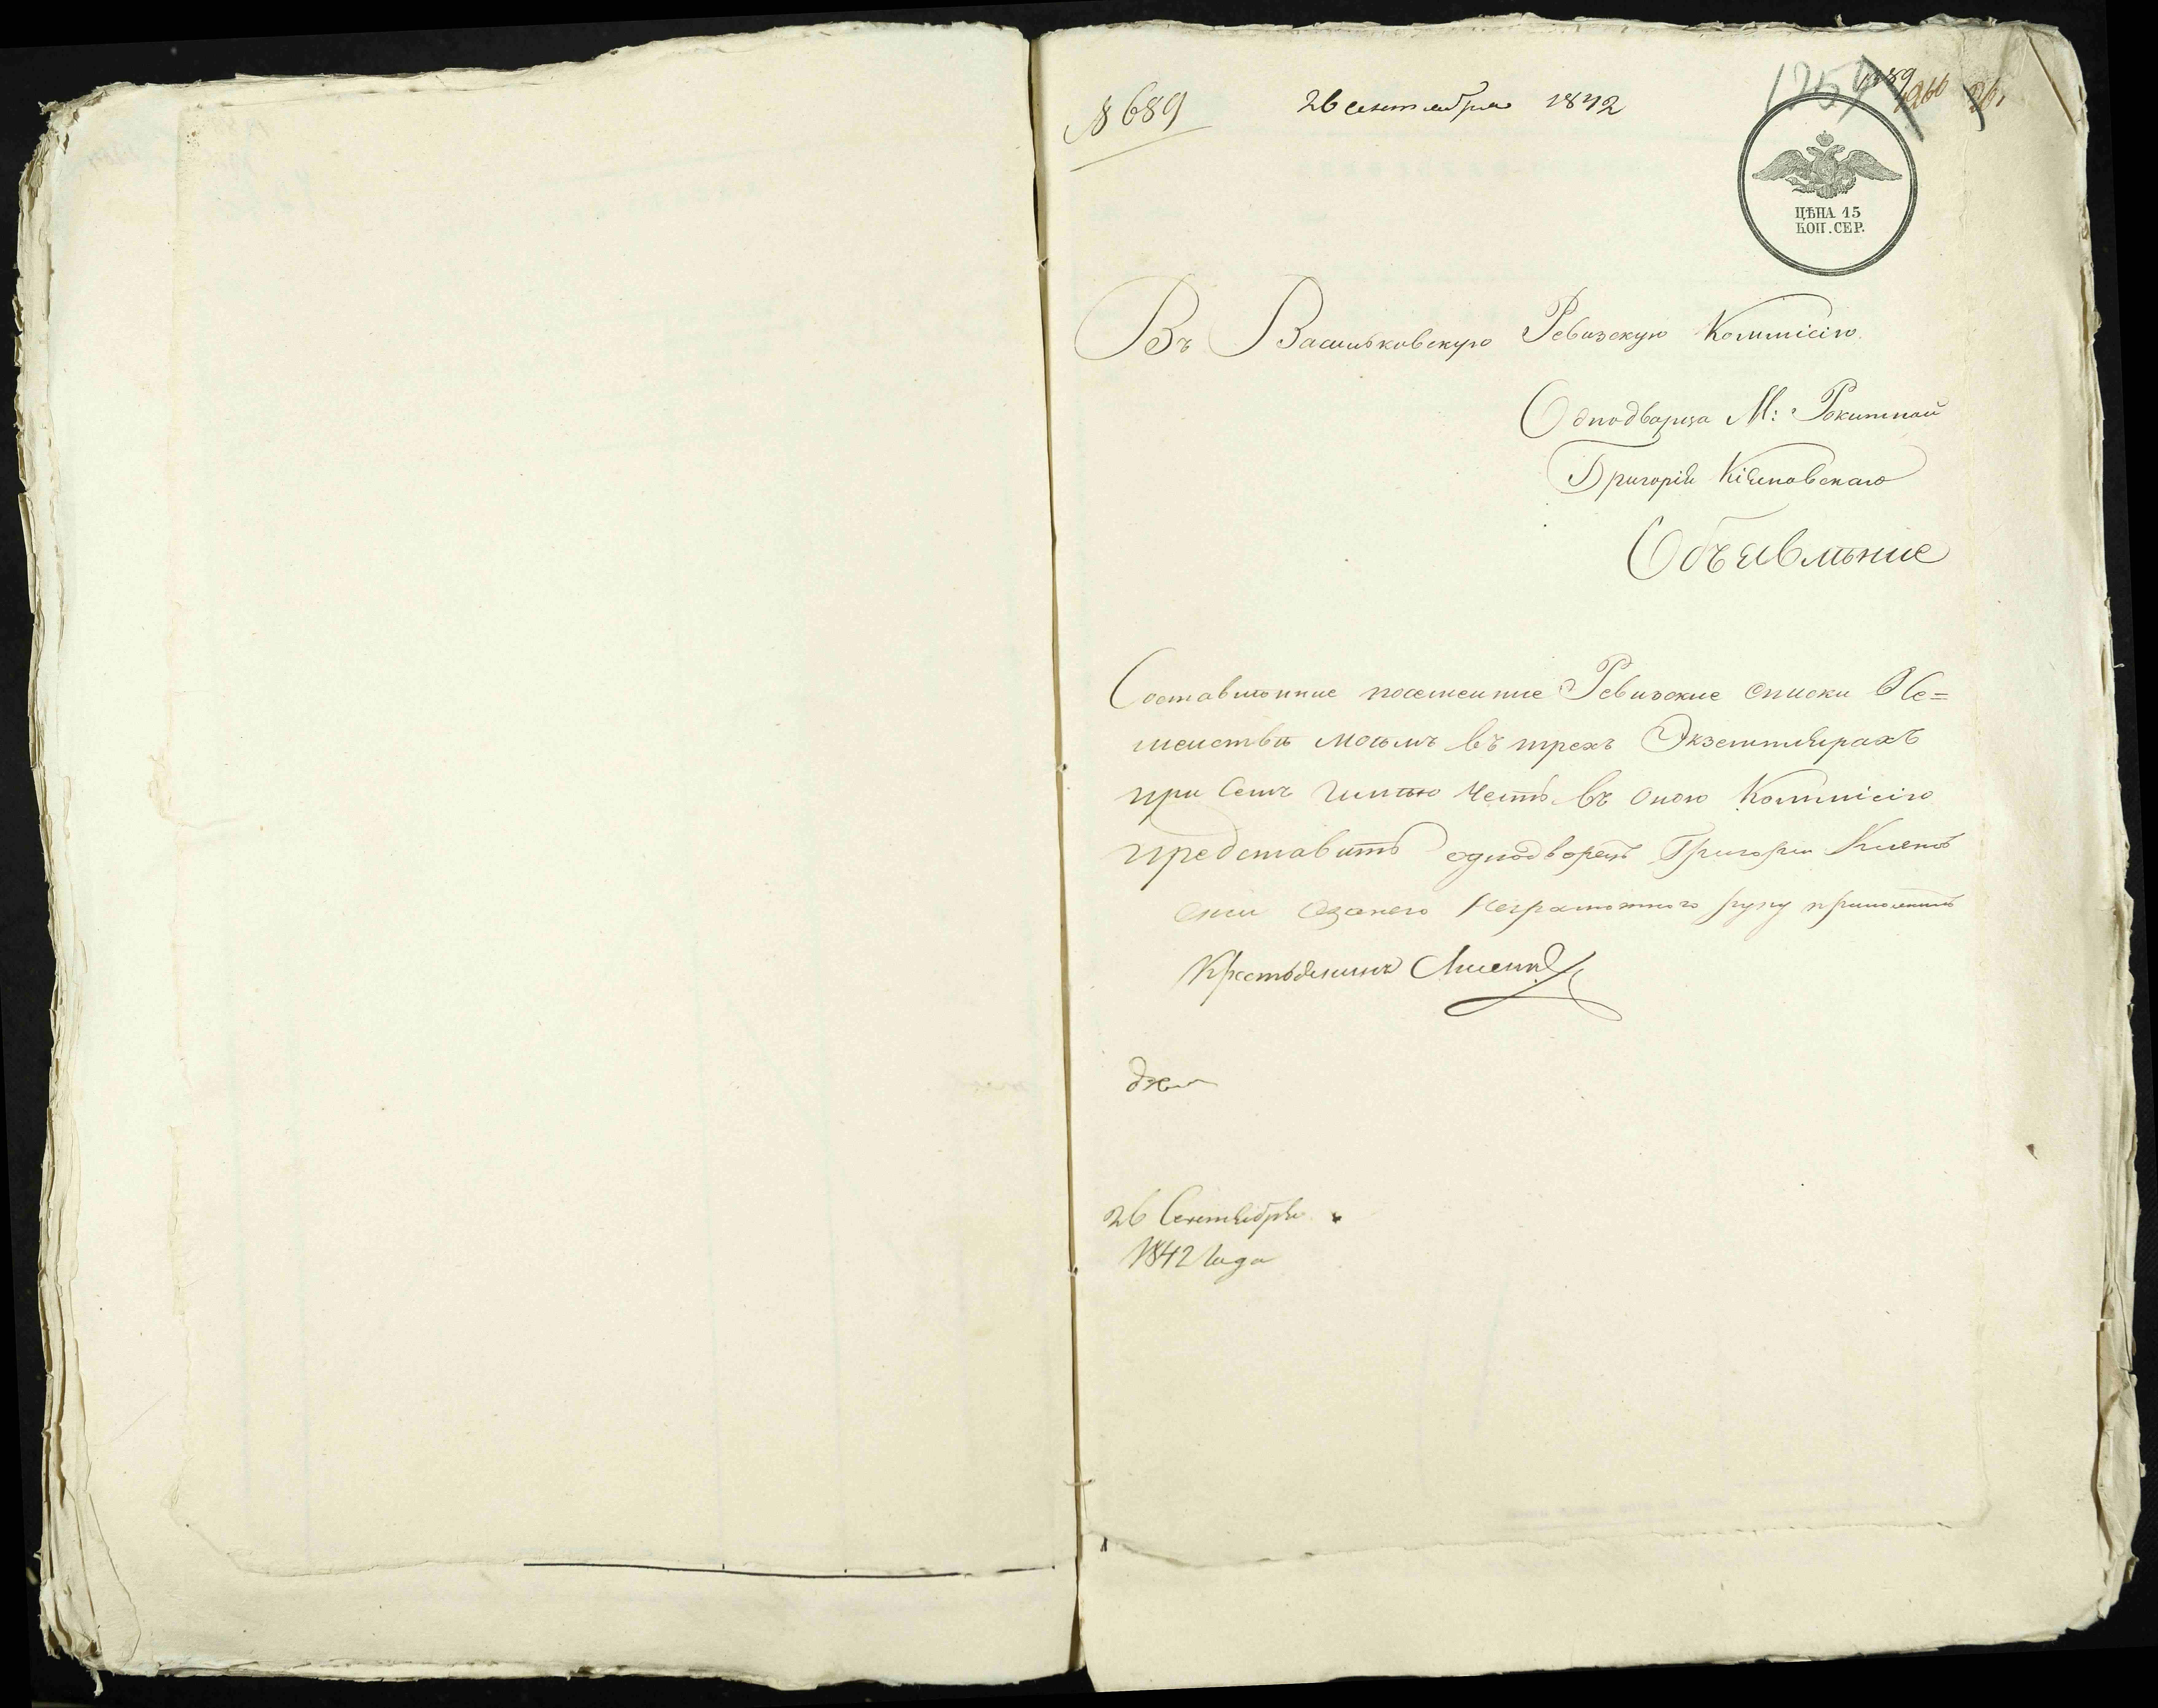 № 689 26 сентября 1842
ЦѢНА 15
КОП. СЕР.
Въ Васильковскую Ревизскую Коммисію
Однодворца М: Рокитной
Григорія Кіяновскаго
Объявленіе
Составлѣнние посемение Ревизкие списки О Се=
мействѣ моемъ въ трехъ Экземплярахъ
при семъ имѣю честь въ оною Коммисію
представить однодворецъ Григори Кыянов
ски Азанего неграмотного руку приложилъ
Крестьянинъ
26 Сентября
1842 года